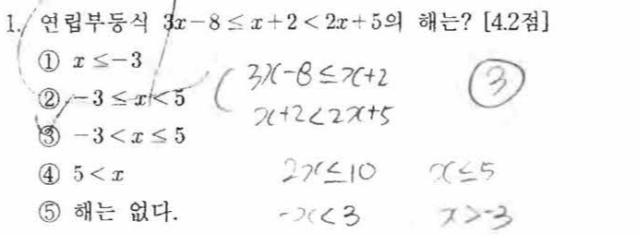 1. 연립부등식 3x-8≤x+2<2x+5의 해는? [4.2점]
① x≤-3
② -3≤x<5
③ -3<x≤5
④ 5<x
⑤ 해는 없다.
3x-8≤x+2
x+2<2x+5
③
2x≤10 x≤5
-x<3 x>-3